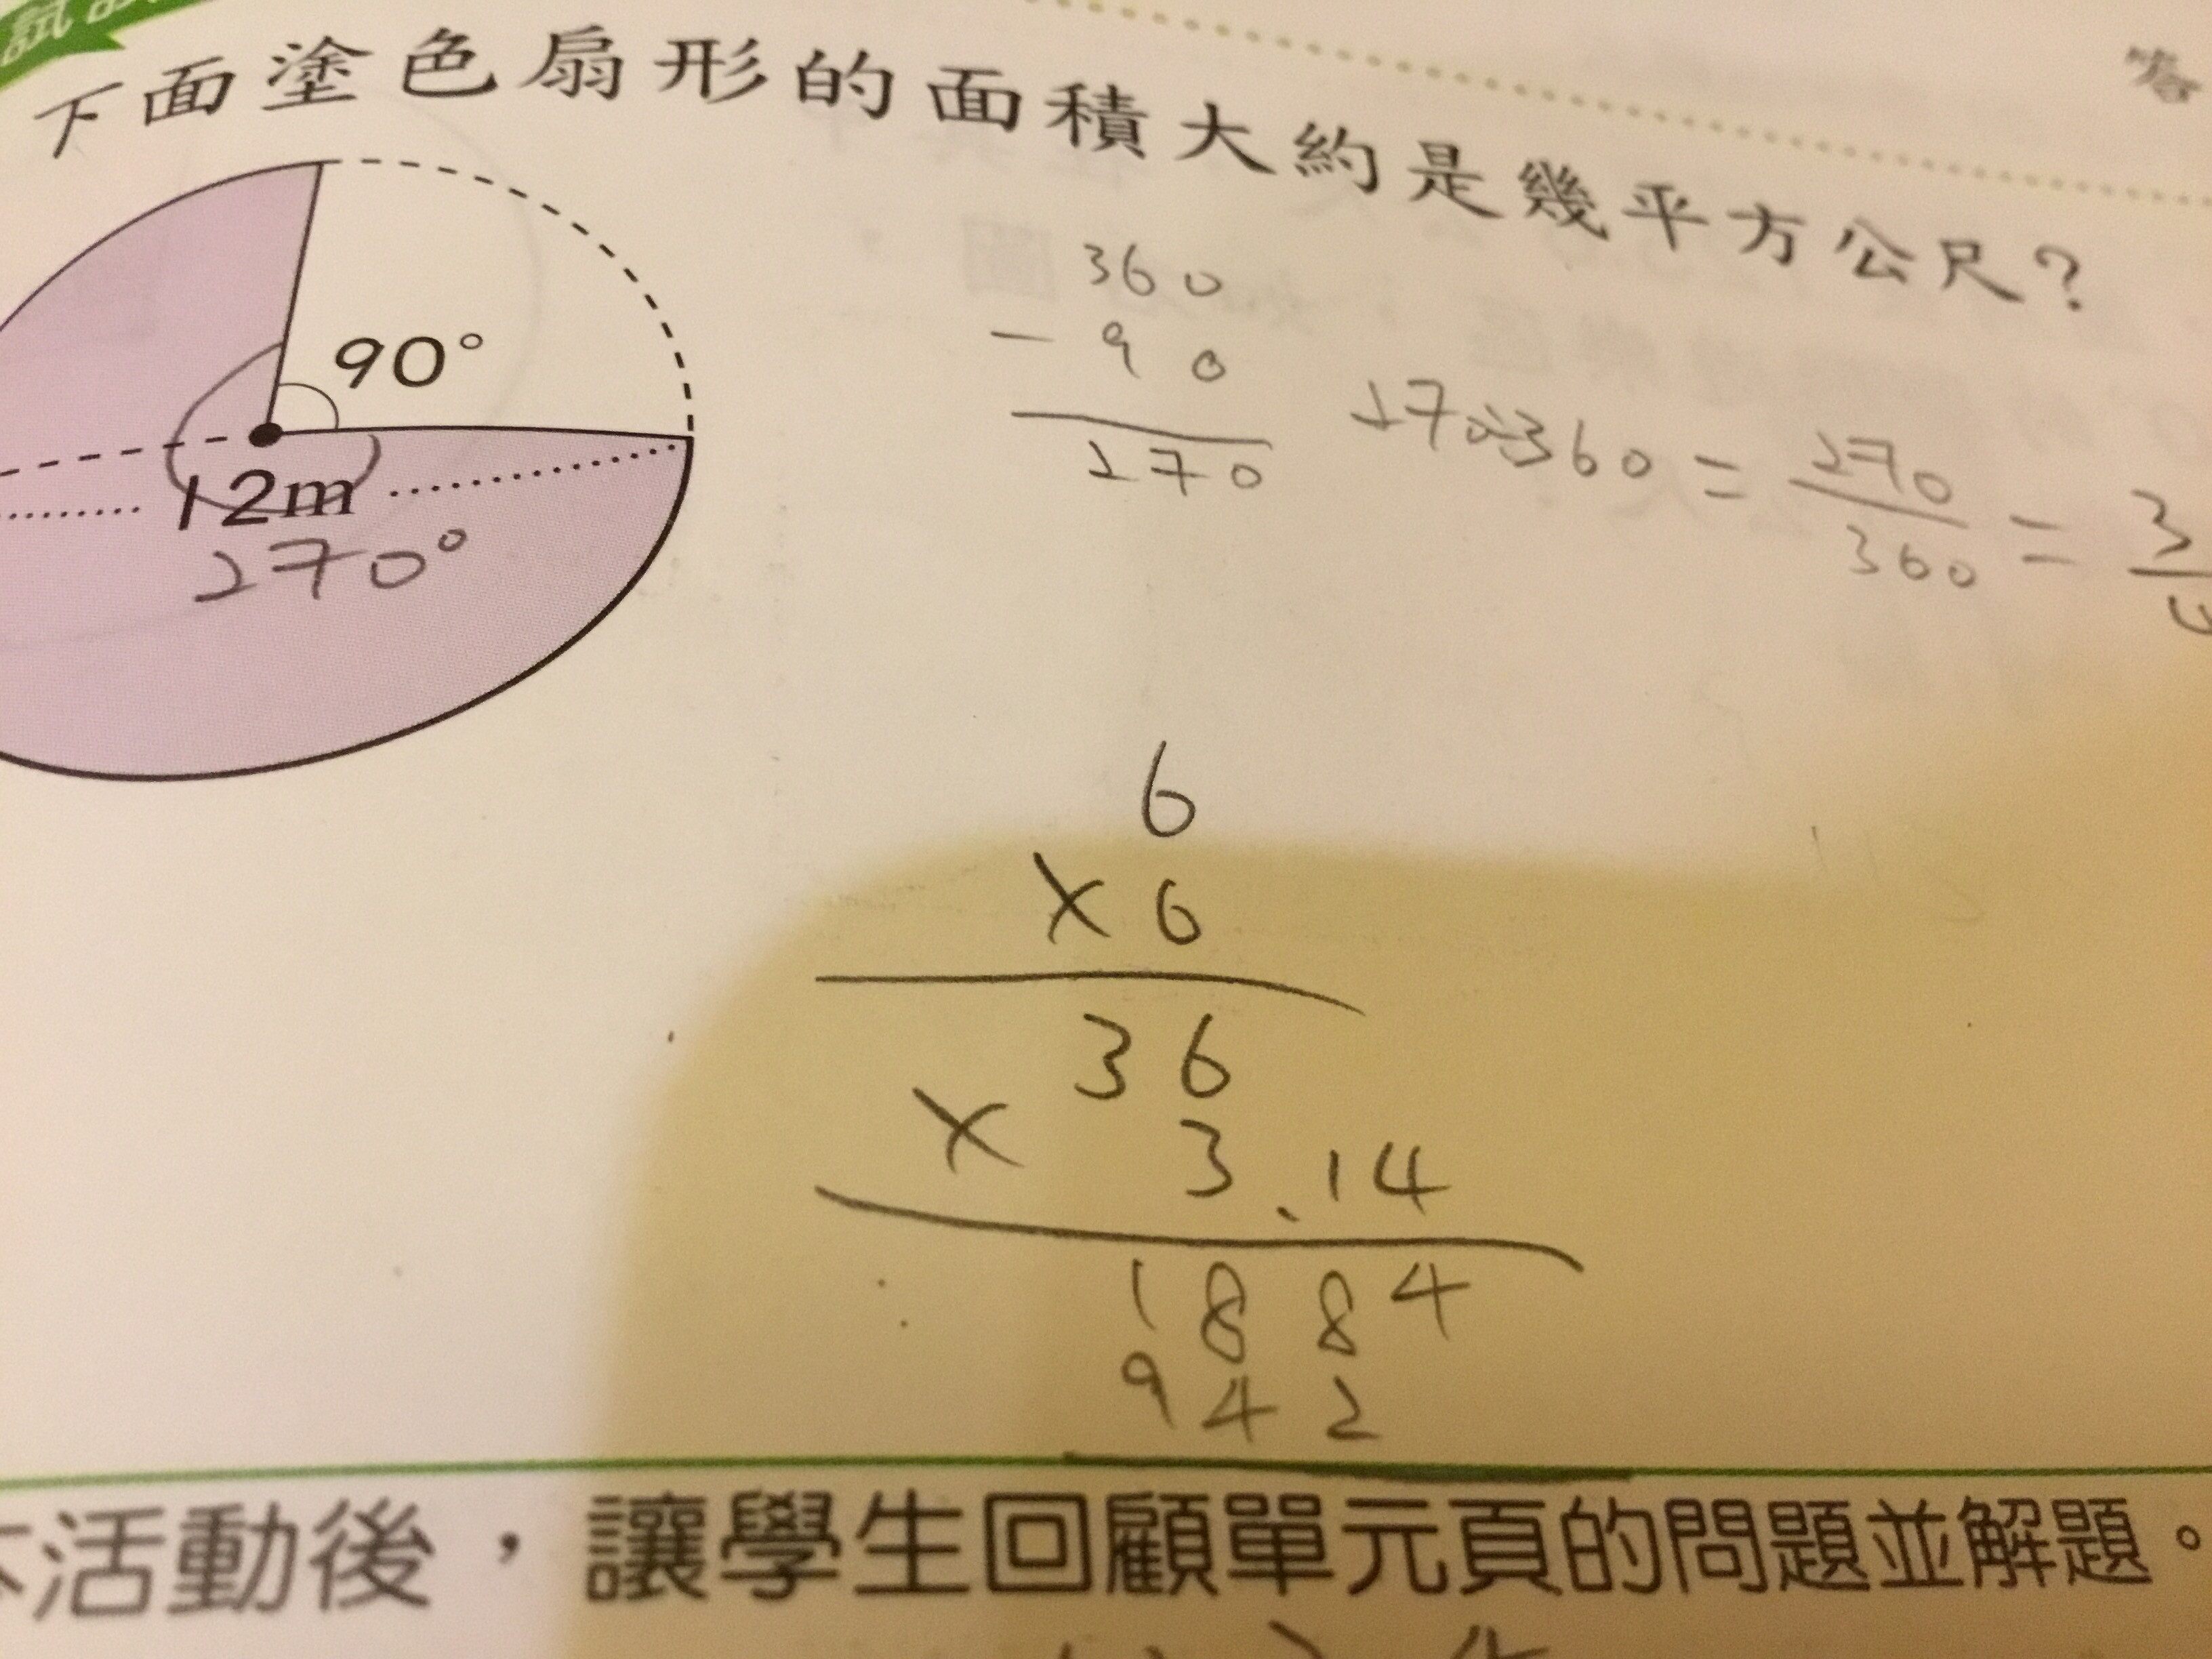 試
答
下面塗色扇形的面積大約是幾平方公尺？
90°
12m
270°
360
-90
270
270÷360=270/360=3/4
6
×6
36
×3.14
1884
942
活動後，讓學生回顧單元頁的問題並解題。